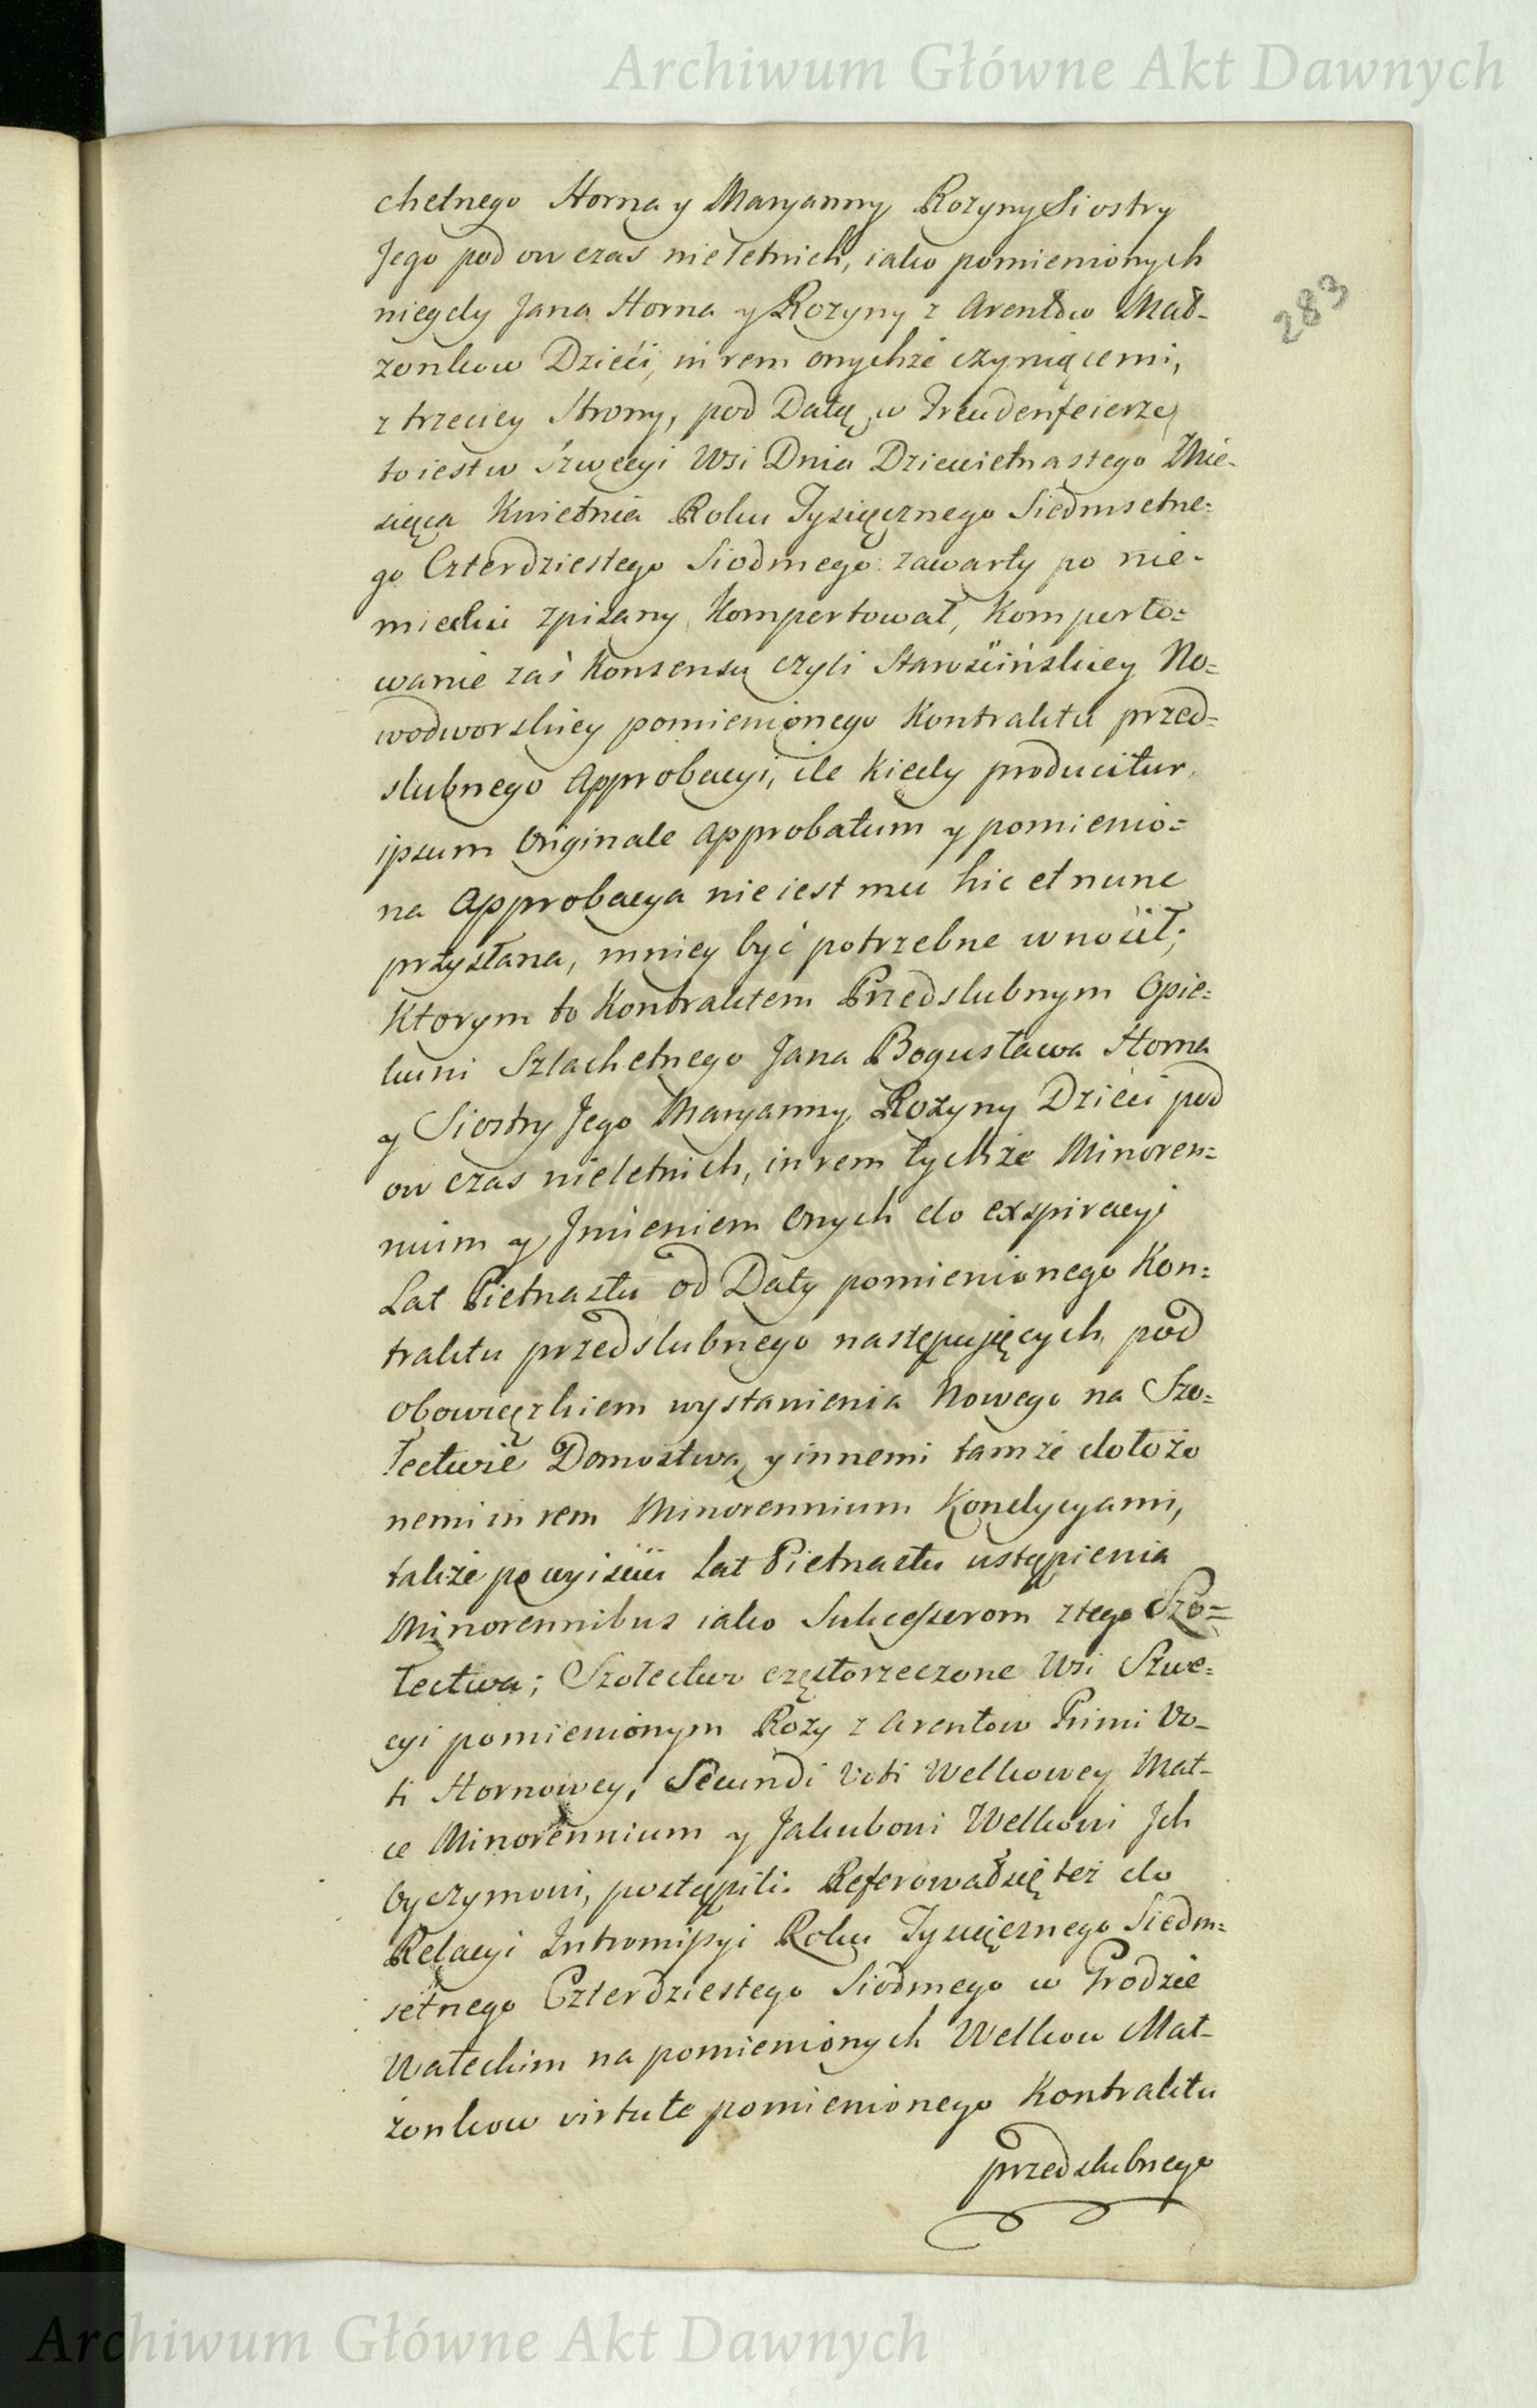 Archiwum Główne Akt Dawnych
283
chetnego Horna y Maryanny Rozyny Siostry
Jego pod ow czas nieletnich, iako pomienionych
niegdy Jana Horna y Rozyny z Arentow Mał-
zonkow Dzieći, in rem onychże czyniącemi,
z trzeciey Strony, pod Datą w Freudenfeierze
to iest w Szwecyi Wsi Dnia Dziewietnastego Mie-
siąca Kwietnia Roku Tysiącznego Siedmsetne=
go Czterdziestego Siodmego zawarty po nie-
miecku zpisany Komportował, Komporto=
wanie zaś Konsensu czyli Starościńskiey No=
wodworskiey pomienionego Kontraktu przed=
slubnego Approbacyi, ile kiedy producitur
ipsum Originale Approbatum y pomienio=
na Approbacya nie iest mu hic et nunc
przysłana, mniey być potrzebne wnosił;
Ktorym to Kontraktem Przedslubnym Opie=
kuni Szlachetnego Jana Bogusława Horna
y Siostry Jego Maryanny Rozyny Dzieci pod
ow czas nieletnich, in rem tychże Minoren=
nium y Jmieniem Onych do exspiracyi
Lat Pietnastu od Daty pomienionego Kon=
traktu przedslubnego następuiących, pod
obowiązkiem wystawienia Nowego na Szo=
łectwie Domostwa, y innemi tamże dołożo
nemi in rem Minorennium Kondycyami,
także po wyisciu Lat Pietnastu ustąpienia
Minorennibus iako Sukcessorom z tego Szo=
łectwa; Szołectwo częstorzeczone Wsi Szwe=
cyi pomienionym Rozy z Arentow Primi Vo-
ti Hornowey, Secundi Voti Welkowey Mat-
ce Minorennium y Jakubowi Welkowi Jch
Oyczymowi, postąpili. Referował się też do
Relacyi Intromissyi Roku Tysiącznego Siedm=
setnego Czterdziestego Siodmego w Grodzie
Wałeckim na pomienionych Welkow Mał-
żonkow virtute pomienionego Kontraktu
przedslubnego
Archiwum Główne Akt Dawnych